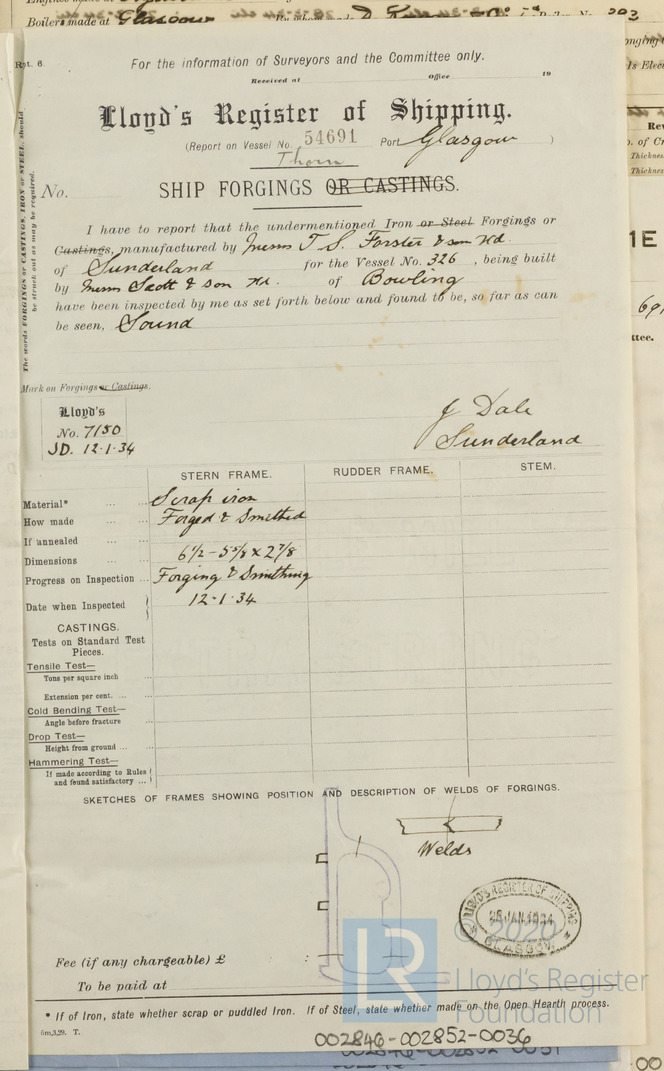 Boilers made at Glasgow
Rpt. 6.
For the information of Surveyors and the Committee only.
Received at Office 19
Lloyd's Register of Shipping.
(Report on Vessel No. 54691 Port Glasgow )
Thorn
No. SHIP FORGINGS OR CASTINGS.
The words FORGINGS or CASTINGS, IRON or STEEL, should
be struck out as may be required.
I have to report that the undermentioned Iron or Steel Forgings or
Castings, manufactured by Messrs T. S. Forster & Son Ltd.
of Sunderland for the Vessel No. 326 , being built
by Messrs Scott & Son Ltd. of Bowling
have been inspected by me as set forth below and found to be, so far as can
be seen, Sound
Mark on Forgings or Castings.
Lloyd's
No. 7150
JD. 12.1.34
J Dale
Sunderland
STERN FRAME. RUDDER FRAME. STEM.
Material* ... ... Scrap iron
How made ... ... Forged & Smithed
If annealed ... ...
Dimensions ... ... 6 1/2 - 5 5/8 x 2 7/8
Progress on Inspection ... Forging & Smithing
Date when Inspected 12.1.34
CASTINGS.
Tests on Standard Test
Pieces.
Tensile Test—
Tons per square inch ...
Extension per cent. ... ...
Cold Bending Test—
Angle before fracture ...
Drop Test—
Height from ground ... ...
Hammering Test—
If made according to Rules
and found satisfactory ...
SKETCHES OF FRAMES SHOWING POSITION AND DESCRIPTION OF WELDS OF FORGINGS.
Welds
LLOYD'S REGISTER OF SHIPPING
25 JAN 1934
GLASGOW
© 2020
LR
Lloyd's Register
Foundation
Fee (if any chargeable) £ : :
To be paid at
* If of Iron, state whether scrap or puddled Iron. If of Steel, state whether made on the Open Hearth process.
5m,3,29. T.
002846-002852-0036